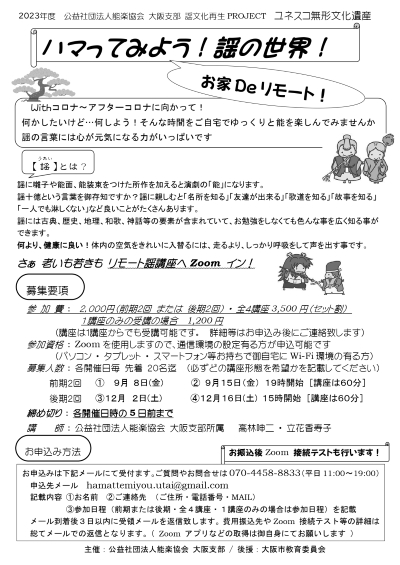 2023年度　公益社団法人能楽協会 大阪支部 謡文化再生 PROJECT　ユネスコ無形文化遺産
ハマってみよう！謡の世界！
お家 De リモート！
Withコロナ～アフターコロナに向かって！
何かしたいけど…何しよう！そんな時間をご自宅でゆっくりと能を楽しんでみませんか
謡の言葉には心が元気になる力がいっぱいです
【謡】とは？
うたい
謡に囃子や能面、能装束をつけた所作を加えると演劇の「能」になります。
謡十徳という言葉を御存知ですか？謡に親しむと「名所を知る」「友達が出来る」「歌道を知る」「故事を知る」
「一人でも淋しくない」など良いことがたくさんあります。
謡には古典、歴史、地理、和歌、神話等の要素が含まれていて、お勉強をしなくても色んな事を広く知る事が
できます。
何より、健康に良い！体内の空気をきれいに入替るには、走るより、しっかり呼吸をして声を出す事です。
さぁ 老いも若きも リモート謡講座へ Zoom イン！
募集要項
参 加 費： 2,000円(前期2回 または 後期2回)・全4講座 3,500円(セット割)
1講座のみの受講の場合　1,200円
(講座は1講座からでも受講可能です。　詳細等はお申込み後にご連絡致します)
参加資格：Zoomを使用しますので、通信環境の設定有る方が申込可能です
(パソコン・タブレット・スマートフォン等お持ちで御自宅に Wi-Fi 環境の有る方)
募集人数：各開催日毎 先着 20名迄　(必ずどの講座形態を希望かを記載してください)
前期2回　①　9月 8日(金)　② 9月15日(金) 19時開始 [講座は60分]
後期2回　③12月 2日(土)　④12月16日(土) 15時開始 [講座は60分]
締め切り：各開催日時の5日前まで
講　　師：公益社団法人能楽協会 大阪支部所属　高林呻二・立花香寿子
お申込み方法
お振込後 Zoom 接続テストも行います！
お申込みは下記メールにて受付ます。ご質問やお問合せは 070-4458-8833(平日11:00～19:00)
申込先メール　hamattemiyou.utai@gmail.com
記載内容 ①お名前　②ご連絡先　(ご住所・電話番号・MAIL)
③参加日程 (前期または後期・全4講座・1講座のみの場合は参加日程) を記載
メール到着後3日以内に受領メールを返信致します。費用振込先や Zoom 接続テスト等の詳細は
総てメールでの返信となります。( Zoom アプリなどの取得は御自身にてお願いします )
主催：公益社団法人能楽協会 大阪支部 / 後援：大阪市教育委員会